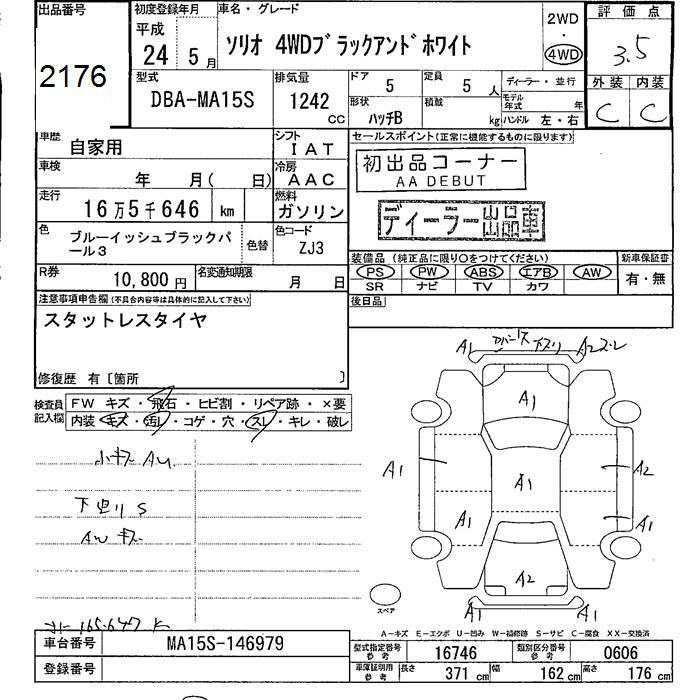 出品番号
2176
初度登録年月
平成
24 5月
車名・グレード
ソリオ 4WDブラックアンドホワイト
2WD
・
4WD
評価点
3.5
外装 内装
C C
型式
DBA-MA15S
排気量
1242
cc
ドア 5
定員 5 人
ディーラー・並行
モデル年式 年
形状 ハッチB
積載 kg
ハンドル 左・右
車歴
自家用
シフト
IAT
セールスポイント(正常に機能するものに限ります)
初出品コーナー
AA DEBUT
ディーラー出品車
車検
年 月( 日)
冷房
AAC
走行
16万5千646 km
燃料
ガソリン
色
ブルーイッシュブラックパール3
色替
色コード
ZJ3
装備品 (純正品に限り○をつけてください)
PS PW ABS エアB AW
SR ナビ TV カワ
新車保証書
有・無
R券
10,800 円
名変通知期限
月 日
後日品
注意事項申告欄(不具合内容等は具体的に記入して下さい)
スタットレスタイヤ
修復歴 有〔箇所 〕
検査員記入欄
FW キズ・飛石・ヒビ割・リペア跡・×要
内装 キズ・汚レ・コゲ・穴・スレ・キレ・破レ
小キズ AU
下廻リ S
AW キズ
165.647 K
A1 A2
A1
A1 A1 A2
A1 A1
A2
A1 A1
スペア
A-キズ E-エクボ U-凹み W-補修跡 S-サビ C-腐食 XX-交換済
車台番号
MA15S-146979
登録番号
型式指定番号 参考
16746
類別区分番号 参考
0606
車庫証明用 参考
長さ 371 cm
幅 162 cm
高さ 176 cm